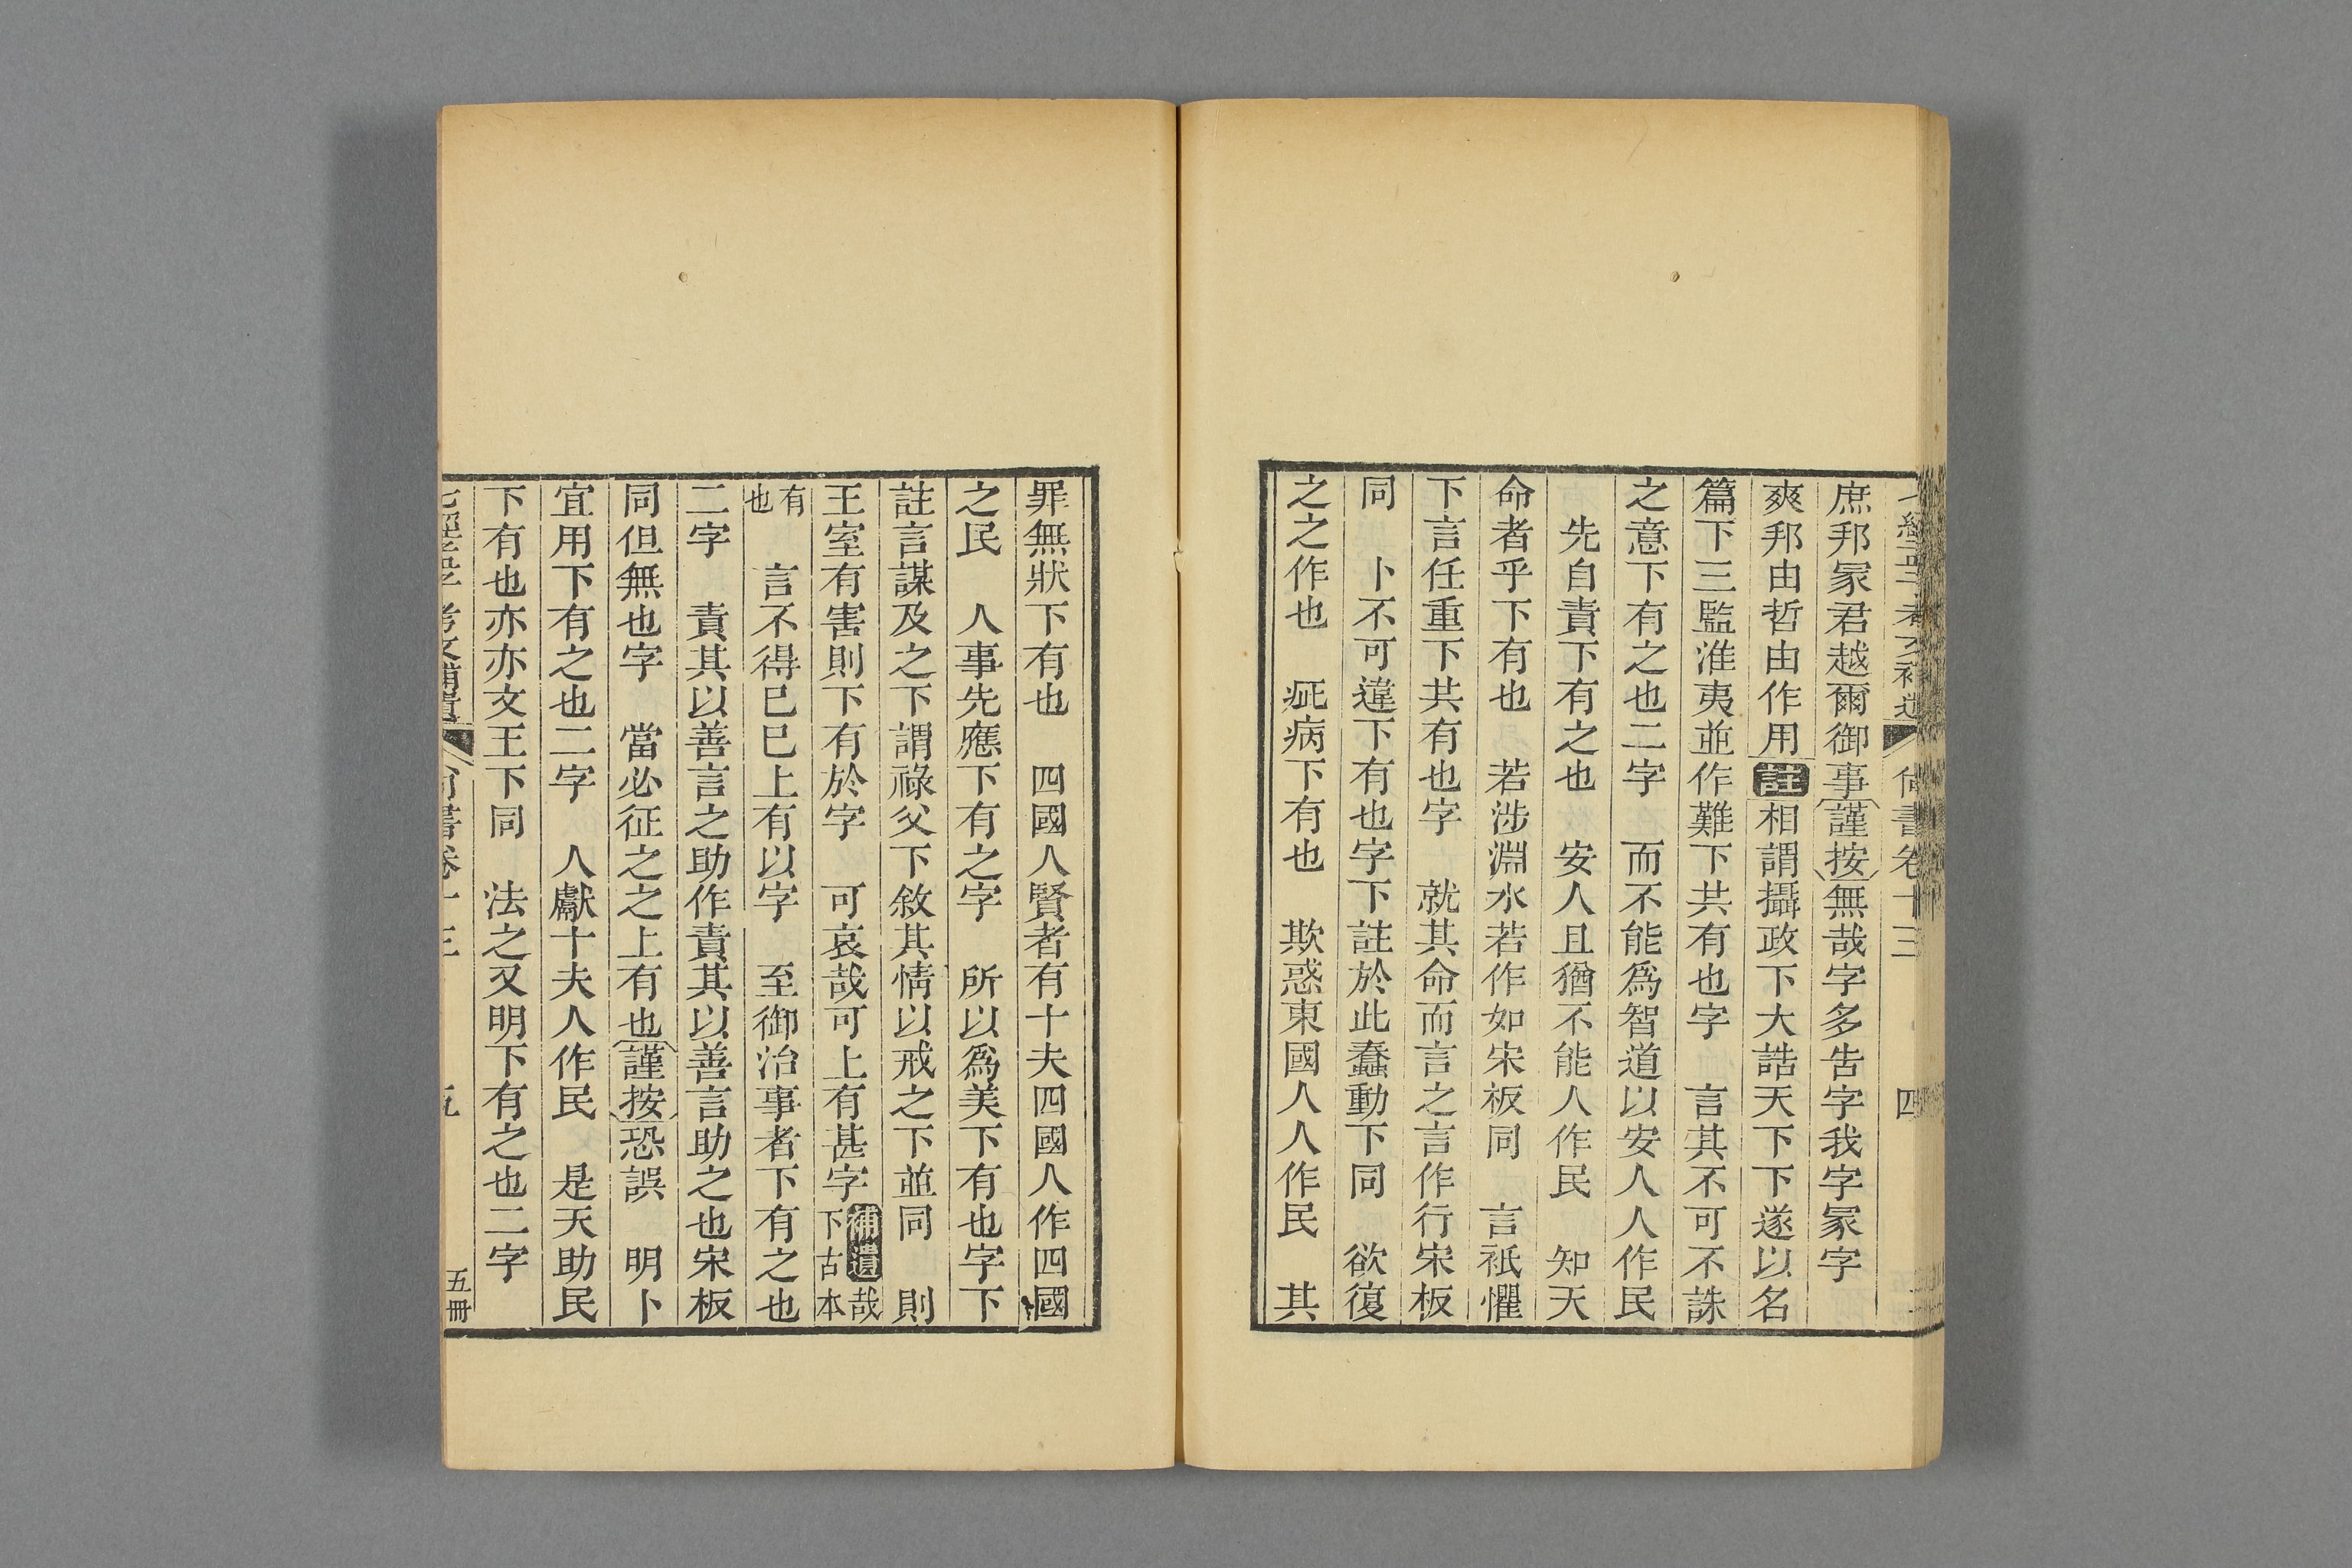 尚書卷十三　四
庶邦冡君越爾御事謹按無哉字多告字我字冡字
爽邦由哲由作用註相謂攝政下大誥天下下遂以名
篇下三監淮夷並作難下共有也字　言其不可不誅
之意下有之也二字　而不能爲智道以安人人作民
先自責下有之也　安人且猶不能人作民　知天
命者乎下有也　若涉淵水若作如宋板同　言祇懼
下言任重下共有也字　就其命而言之言作行宋板
同　卜不可違下有也字下註於此蠢動下同　欲復
之之作也　疵病下有也　欺惑東國人人作民　其
罪無狀下有也　四國人賢者有十夫四國人作四國
之民　人事先應下有之字　所以爲美下有也字下
註言謀及之下謂祿父下敘其情以戒之下並同　則
王室有害則下有於字　可哀哉可上有甚字補遺哉下古本
有也　言不得已已上有以字　至御治事者下有之也
二字　責其以善言之助作責其以善言助之也宋板
同但無也字　當必征之之上有也謹按恐誤　明卜
宜用下有之也二字　人獻十夫人作民　是天助民
下有也亦亦文王下同　法之又明下有之也二字
五冊